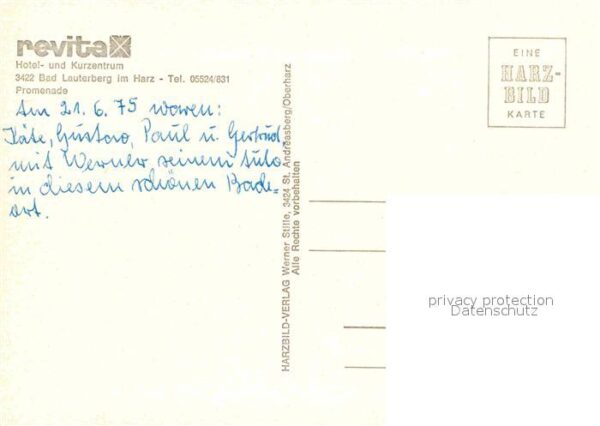 revita
Hotel- und Kurzentrum
3422 Bad Lauterberg im Harz - Tel. 05524/831
Promenade
Am 21. 6. 75 waren:
Käte, Gustav, Paul u. Gertrud,
mit Werner, seinem Auto
in diesem schönen Bade-
ort.
HARZBILD-VERLAG Werner Stille, 3424 St. Andreasberg/Oberharz
Alle Rechte vorbehalten
EINE
HARZ-
BILD
KARTE
privacy protection
Datenschutz